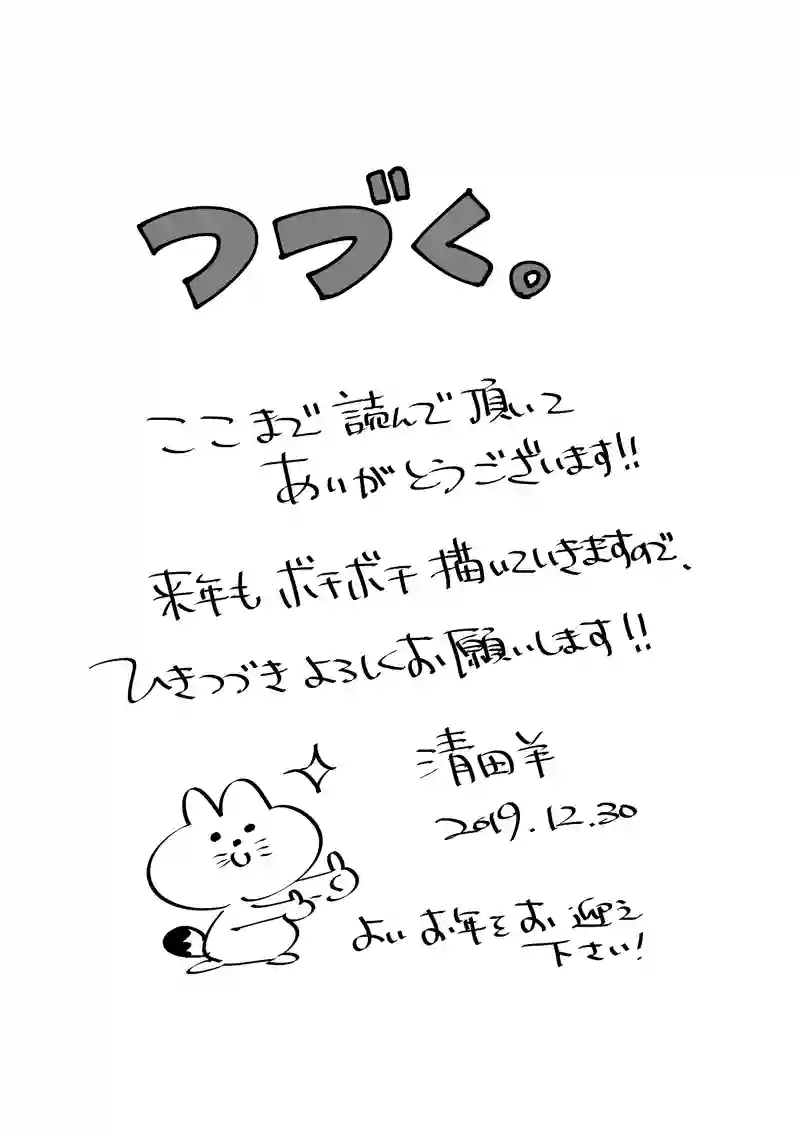 つづく。
ここまで読んで頂いて
ありがとうございます!!
来年もボチボチ描いていきますので、
ひきつづきよろしくお願いします!!
清田羊
2019.12.30
よいお年をお迎え
下さい!